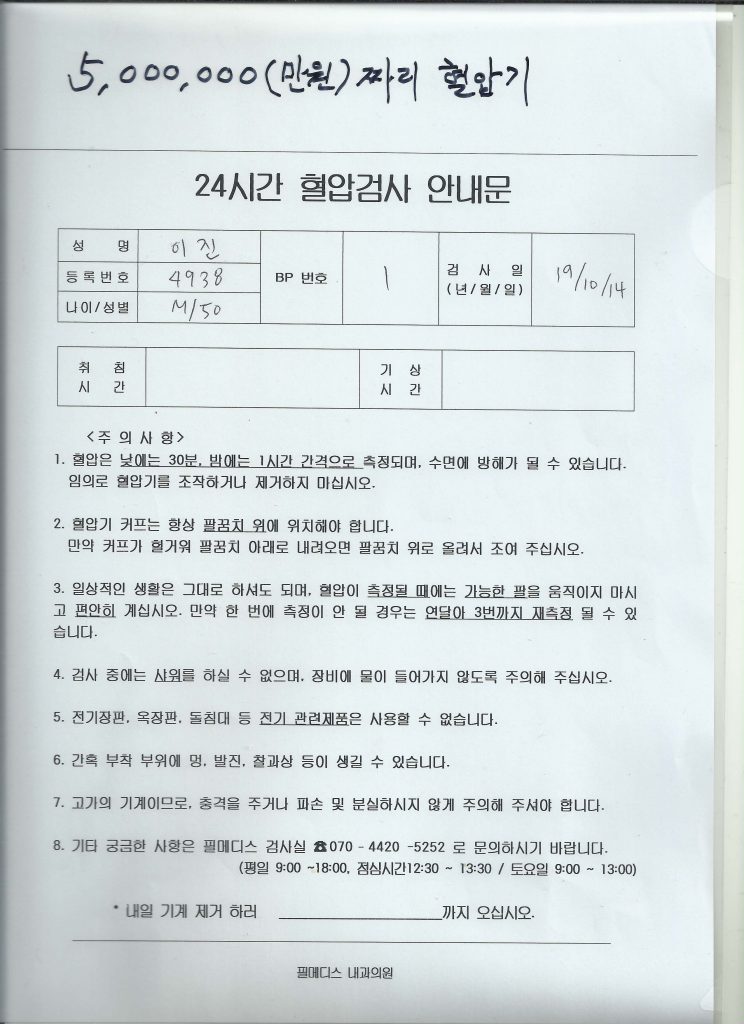 5,000,000(만원)짜리 혈압기
24시간 혈압검사 안내문
성 명 이진
등록번호 4938
나이/성별 M/50
BP 번호 1
검 사 일
(년/월/일) 19/10/14
취 침
시 간
기 상
시 간
<주 의 사 항>
1. 혈압은 낮에는 30분, 밤에는 1시간 간격으로 측정되며, 수면에 방해가 될 수 있습니다.
임의로 혈압기를 조작하거나 제거하지 마십시오.
2. 혈압기 커프는 항상 팔꿈치 위에 위치해야 합니다.
만약 커프가 헐거워 팔꿈치 아래로 내려오면 팔꿈치 위로 올려서 조여 주십시오.
3. 일상적인 생활은 그대로 하셔도 되며, 혈압이 측정될 때에는 가능한 팔을 움직이지 마시
고 편안히 계십시오. 만약 한 번에 측정이 안 될 경우는 연달아 3번까지 재측정 될 수 있
습니다.
4. 검사 중에는 샤워를 하실 수 없으며, 장비에 물이 들어가지 않도록 주의해 주십시오.
5. 전기장판, 옥장판, 돌침대 등 전기 관련제품은 사용할 수 없습니다.
6. 간혹 부착 부위에 멍, 발진, 찰과상 등이 생길 수 있습니다.
7. 고가의 기계이므로, 충격을 주거나 파손 및 분실하시지 않게 주의해 주셔야 합니다.
8. 기타 궁금한 사항은 필메디스 검사실 ☎070 - 4420 -5252 로 문의하시기 바랍니다.
(평일 9:00 ~18:00, 점심시간12:30 ~ 13:30 / 토요일 9:00 ~ 13:00)
* 내일 기계 제거 하러 ____________________까지 오십시오.
필메디스 내과의원